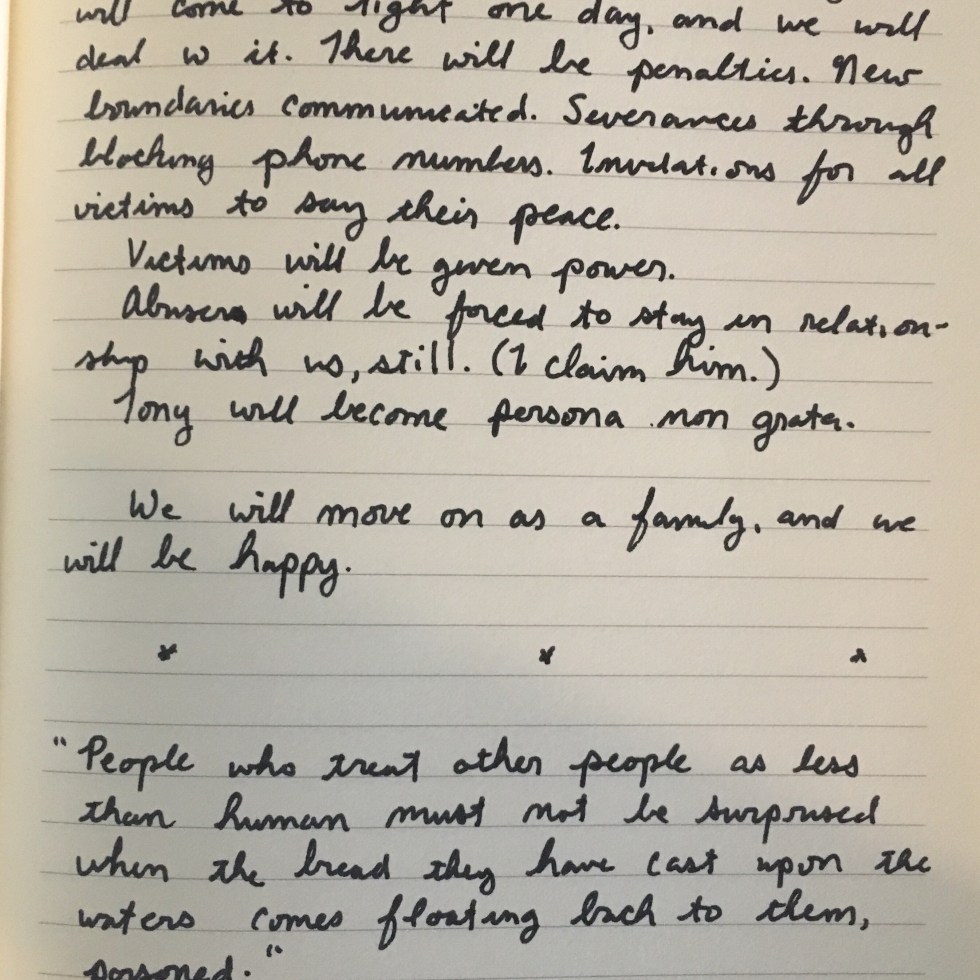 will come to light one day, and we will
deal w it. There will be penalties. New
boundaries communicated. Severances through
blocking phone numbers. Invitations for all
victims to say their peace.
Victims will be given power.
Abusers will be forced to stay in relation-
ship with us, still. (I claim him.)
Tony will become persona non grata.
We will move on as a family, and we
will be happy.
* * *
"People who treat other people as less
than human must not be surprised
when the bread they have cast upon the
waters comes floating back to them,
poisoned."